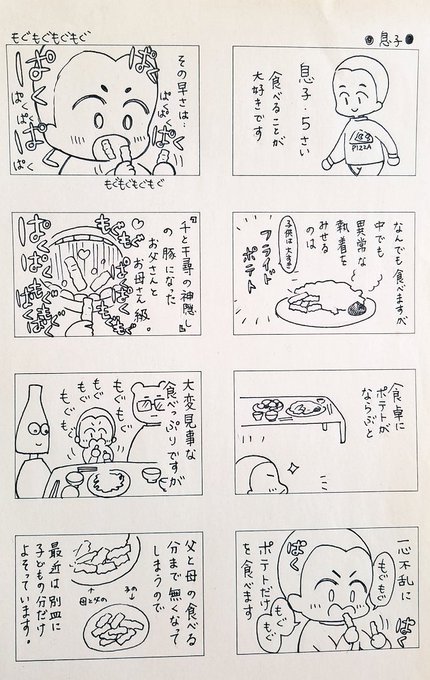 息子
息子・5さい
食べることが
大好きです
PIZZA
なんでも食べますが
中でも
異常な
執着を
みせる
のは
子供は大すき
フライド
ポテト
食卓に
ポテトが
ならぶと
一心不乱に
ポテトだけ
を食べます
ぱく
もぐもぐ
もぐ
もぐ
ぱく
もぐもぐもぐもぐ
その早さは…
ぱく
ぱく
ぱく
ぱく
ぱく
ぱく
ぱく
もぐもぐもぐもぐ
『千と千尋の神隠し』
の豚になった
お父さんと
お母さん級。
もぐもぐ
ぱくぱく
ぱくぱく
もぐもぐ
大変見事な
食べっぷりですが
もぐもぐ
もぐ
もぐ
もぐもぐ
父と母の食べる
分まで無くなって
しまうので
子の
母と父の
最近は別皿に
子どもの分だけ
よそっています。